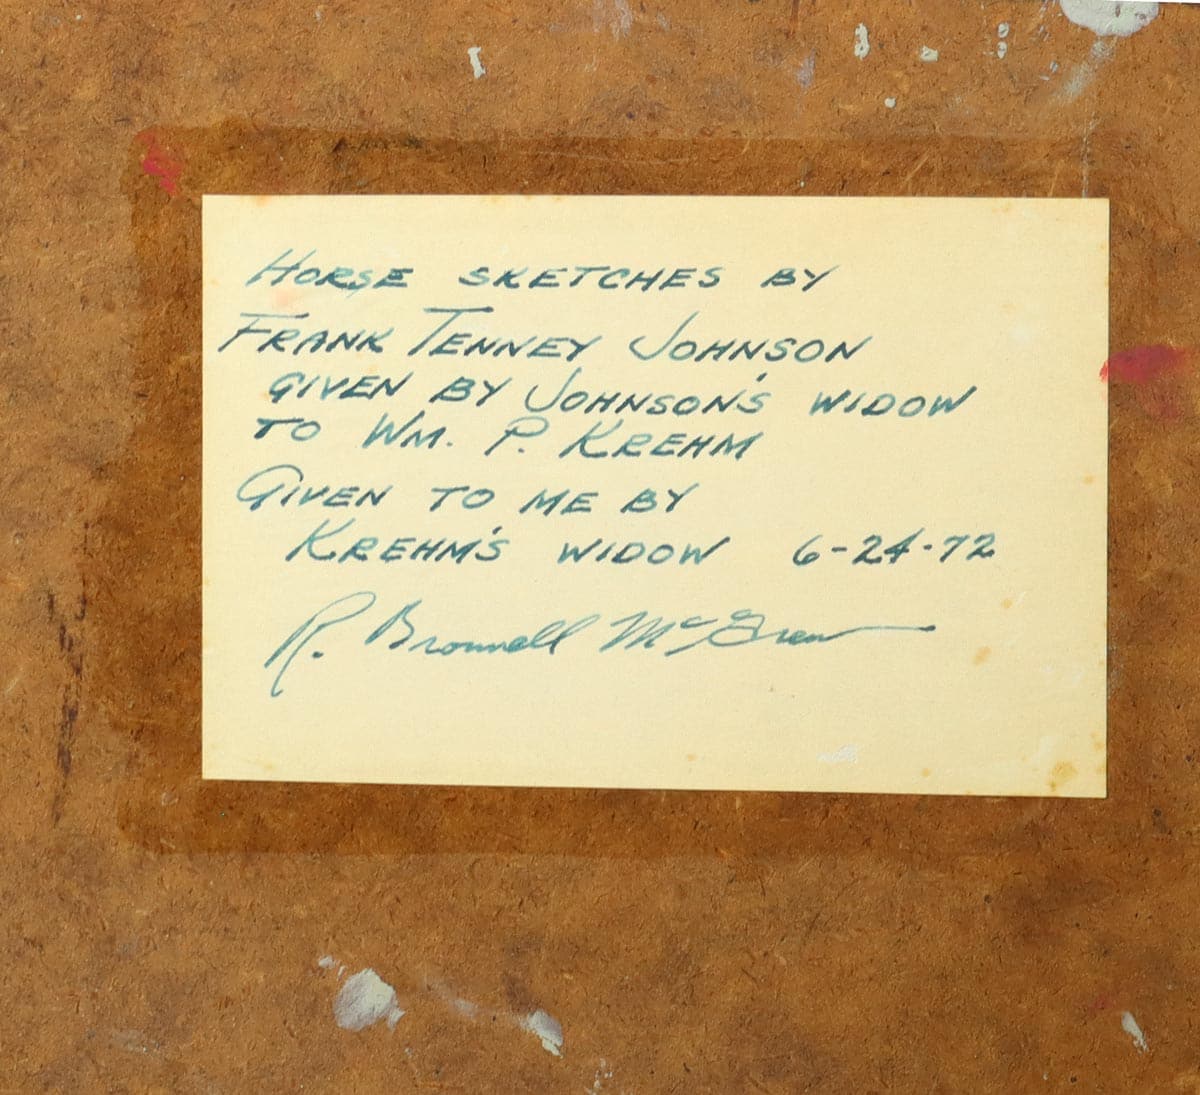 HORSE SKETCHES BY
FRANK TENNEY JOHNSON
GIVEN BY JOHNSON'S WIDOW
TO WM. P. KREHM
GIVEN TO ME BY
KREHM'S WIDOW 6-24-72
R. Brownell McGrew